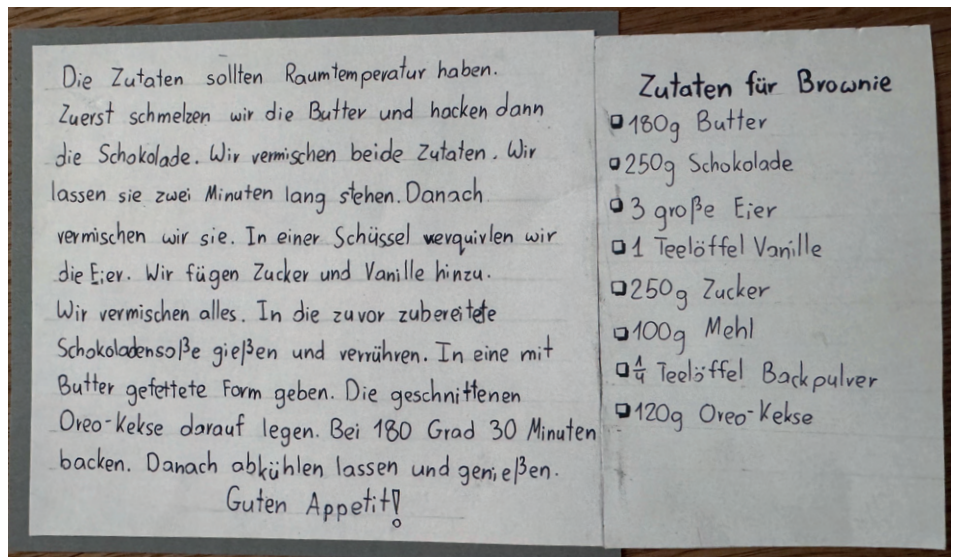 Die Zutaten sollten Raumtemperatur haben.
Zuerst schmelzen wir die Butter und hacken dann
die Schokolade. Wir vermischen beide Zutaten. Wir
lassen sie zwei Minuten lang stehen. Danach
vermischen wir sie. In einer Schüssel verquirlen wir
die Eier. Wir fügen Zucker und Vanille hinzu.
Wir vermischen alles. In die zuvor zubereitete
Schokoladensoße gießen und verrühren. In eine mit
Butter gefettete Form geben. Die geschnittenen
Oreo-Kekse darauf legen. Bei 180 Grad 30 Minuten
backen. Danach abkühlen lassen und genießen.
Guten Appetit!
Zutaten für Brownie
180g Butter
250g Schokolade
3 große Eier
1 Teelöffel Vanille
250g Zucker
100g Mehl
1/4 Teelöffel Backpulver
120g Oreo-Kekse